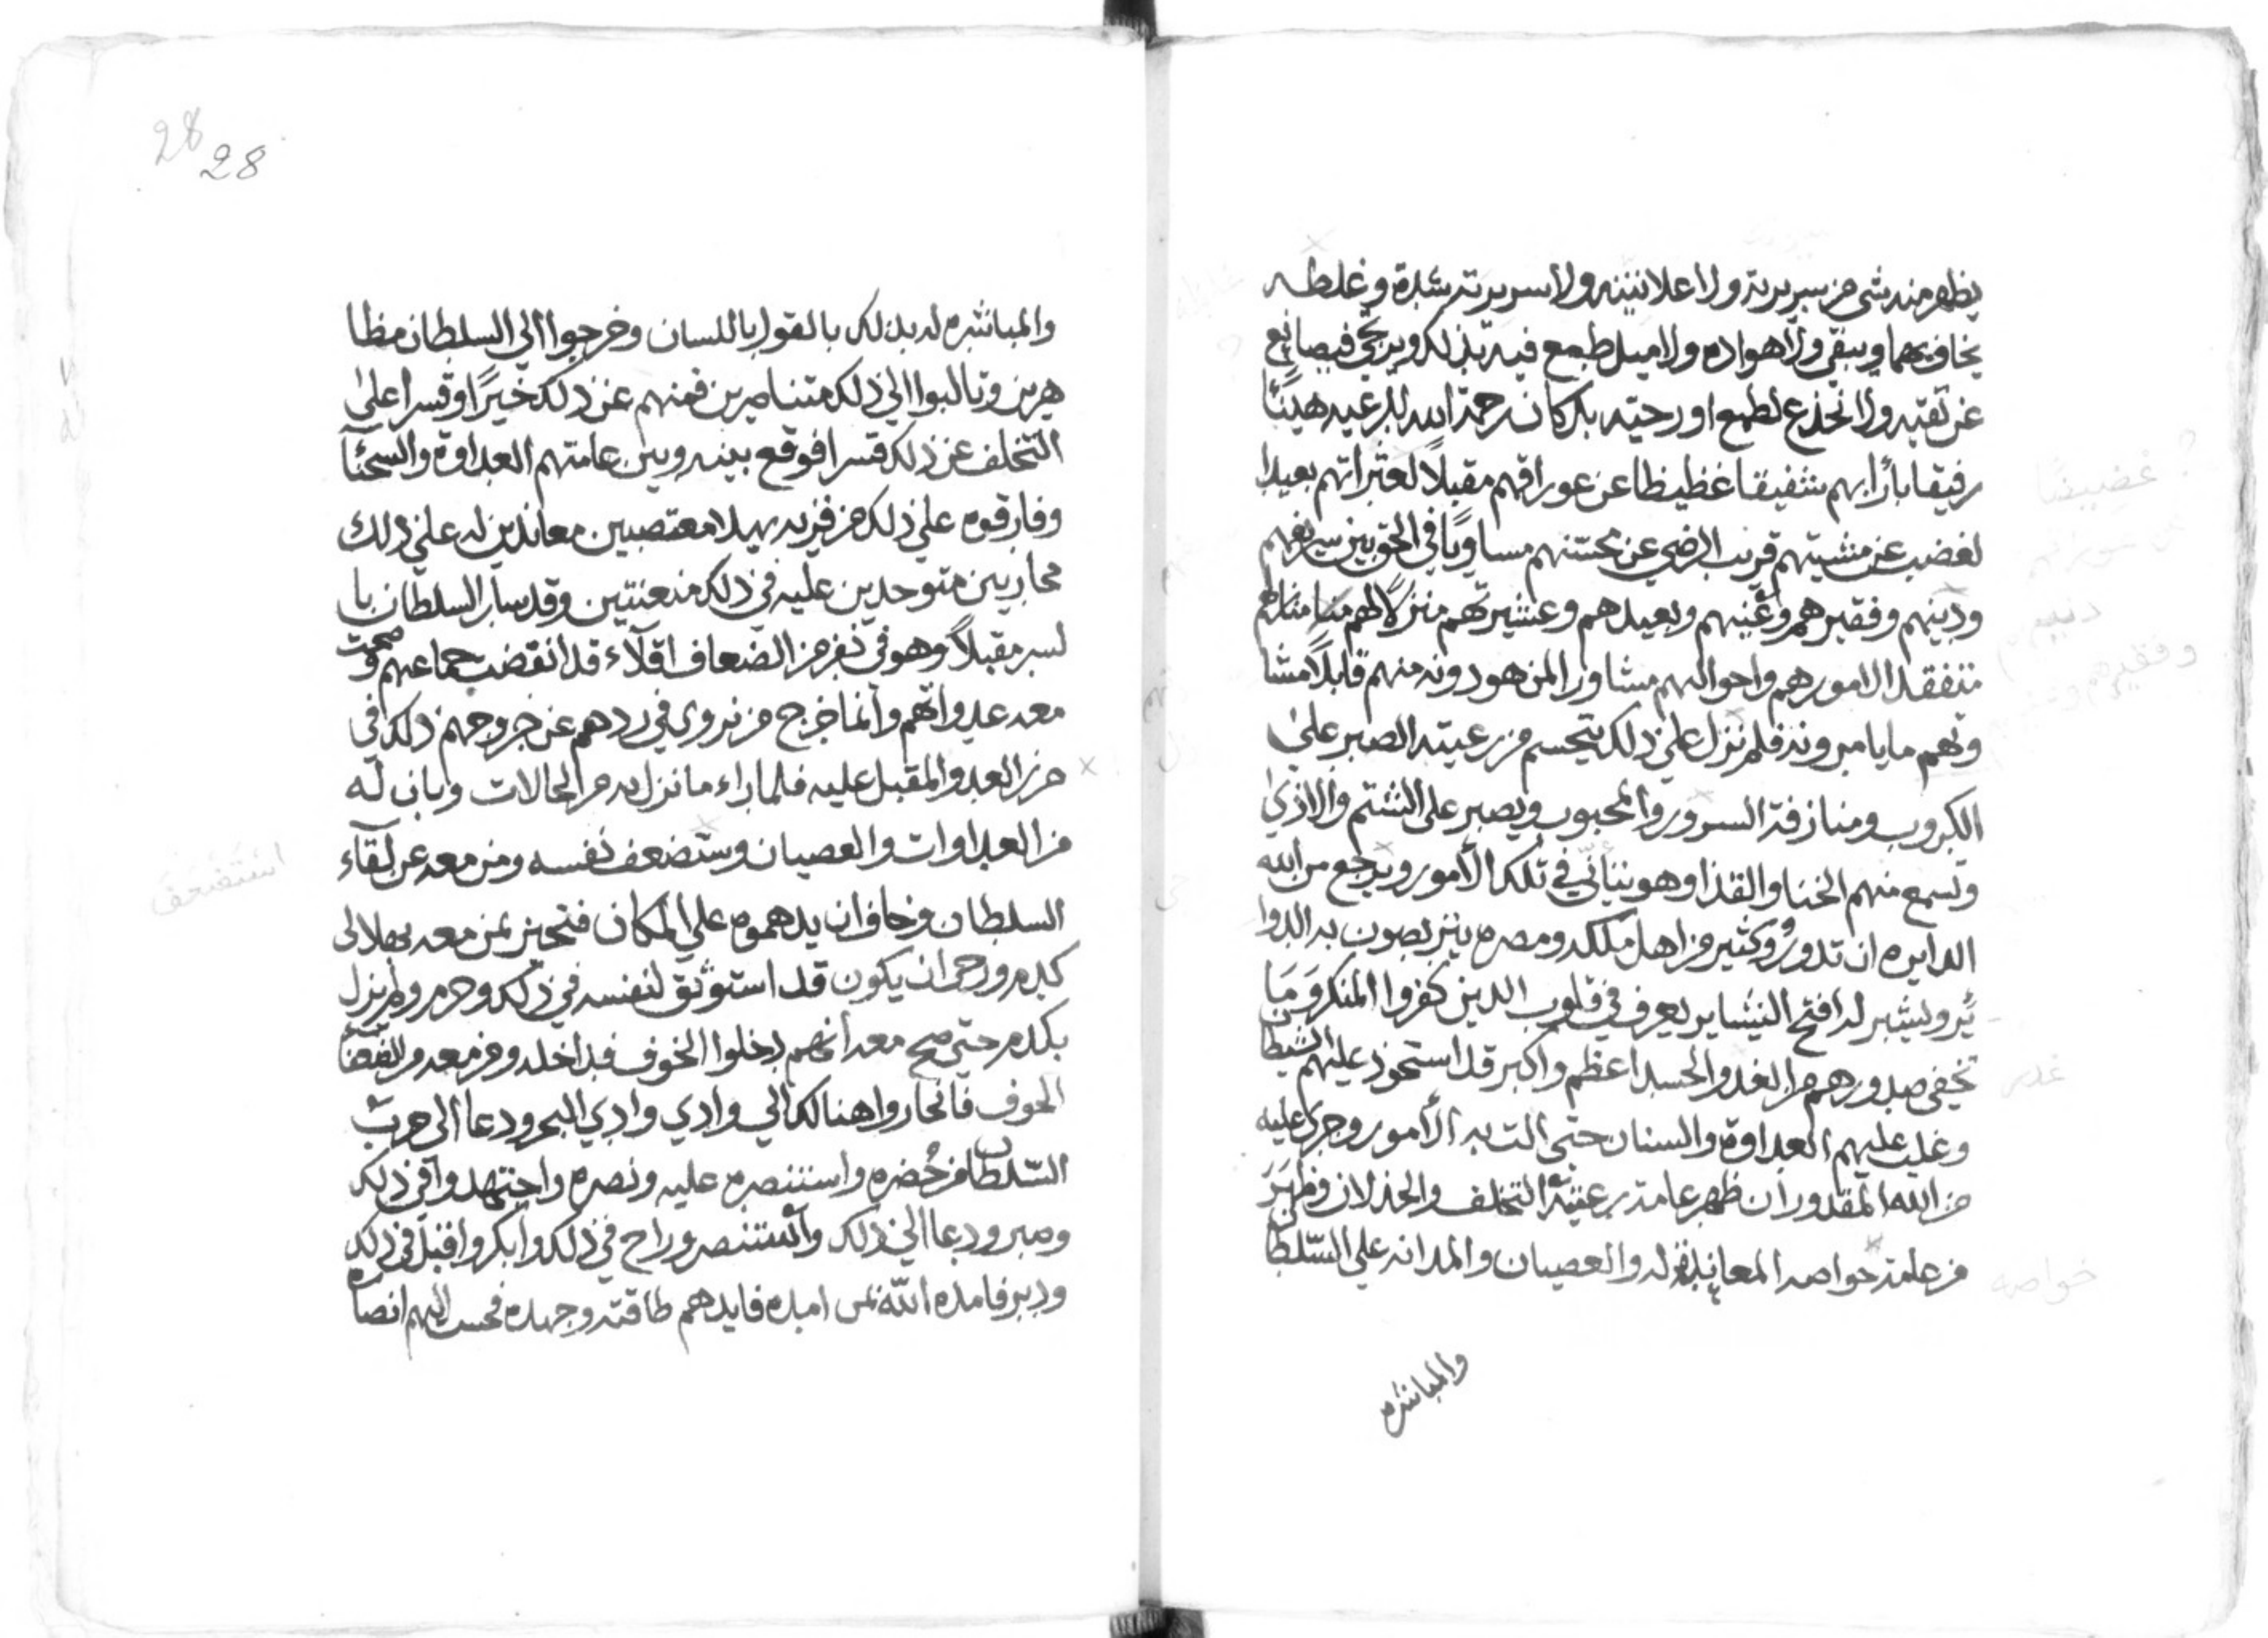 يظهر منه شي من سريرته ولا اعلانيته ولا سريرته بشدة وغلطه
يخاف بهما ويبقي ولا هواده ولا ميل طمع فيه بذلك ويرتجي فيصانع
عن تقيه ولا انخدع لطمع او رحيته بل كان رحمة الله للرعيه هينًا
رفيقا بارًا بهم شفيقا غظيظا عن عوراتهم مقبلًا لعثراتهم بعيدا
لغضب عن مشيتهم قريب الرضي عن محسنهم مساويًا في الحق بين شريفهم
ودينهم وفقيرهم وغنيهم وبعيدهم وعشيرتهم منزلًا لهم منا منازلهم
متفقدا لامورهم واحوالهم مشاورا لمن هو دونه منهم قابلًا مشا
وتهم ما يامرونه فلم نزل علي ذلك يتجسم من رعيته الصبر علي
الكروب ومنازفة السرور والمحبوب ويصبر على الشتم والاذي
وتسمع منهم الخنا والقذا وهو يتأني في تلك الأمور ويرجع من الله
الدايره ان تدور وكثير من اهل ملكه ومصره يتربصون به الدوا
ئر ويشير له افتح البشاير يعرف في قلوب الذين كفروا المنكر وَمَا
تخفي صدورهم من الغد والحسد اعظم واكبر قد استحوذ عليهم الشيطان
وغلب عليهم العداوة والسنان حتى الت به الأمور وجرى عليه
من الله المقدور أن ظهر عامة رعيته التخلف والخذلان وظهرَ
من عامة حواصه المعاندة له والعصيان والمدانه علي السّلطان
والمباشره
28
28
والمباشره له بذلك بالقول باللسان وخرجوا الي السلطان مظا
هرين وتالبوا الي ذلك متناصرين فمنهم عن ذلك خيرًا وقسرا على
التخلف عن ذلك قسرا فوقع بينه وبين عامتهم العداوة والسحنآ
وفارقوه علي ذلك من فزيه بهلا معتصبين معاندين له علي ذلك
محاربين متوحدين عليه في ذلك متعنتين وقد سار السلطان با
لسير مقبلًا وهو في نفر من الضعاف اقلآء قد انقضت جماعتهم وصحت
معه عدواتهم وانما خرج من نزوي في ردهم عن خروجهم ذلك في
حرز العدو المقبل عليه فلما راء ما نزل به من الحالات وبان له
من العداوات والعصيان وستضعف نفسه ومن معه عن لقآء
السلطان وخاف ان يدهموه علي المكان فتحيز بمن معه بهلا الى
كدم ورجى ان يكون قد استوثق لنفسه في ذلك وحزم ولم يزل
بكدم حتي صح معه انهم دخلوا الخوف فداخله ومن معه من
الحوف فانحاروا هنالك الي وادي وادي البحر ودعا الى حرب
السّلطان من حُضره واستنصره عليه ونصره واجتهد وافي ذلك
وصبر ودعا الي ذلك واستنصر وراح في ذلك وابكر واقبل في ذلك
ودبر فامده اللّه بمن امده فايدهم طاقته وجهده فحسب انهم انصاره
؟ غضيضًا
دنيهم
وفقيرهم
غدر
خواصه
استضعف